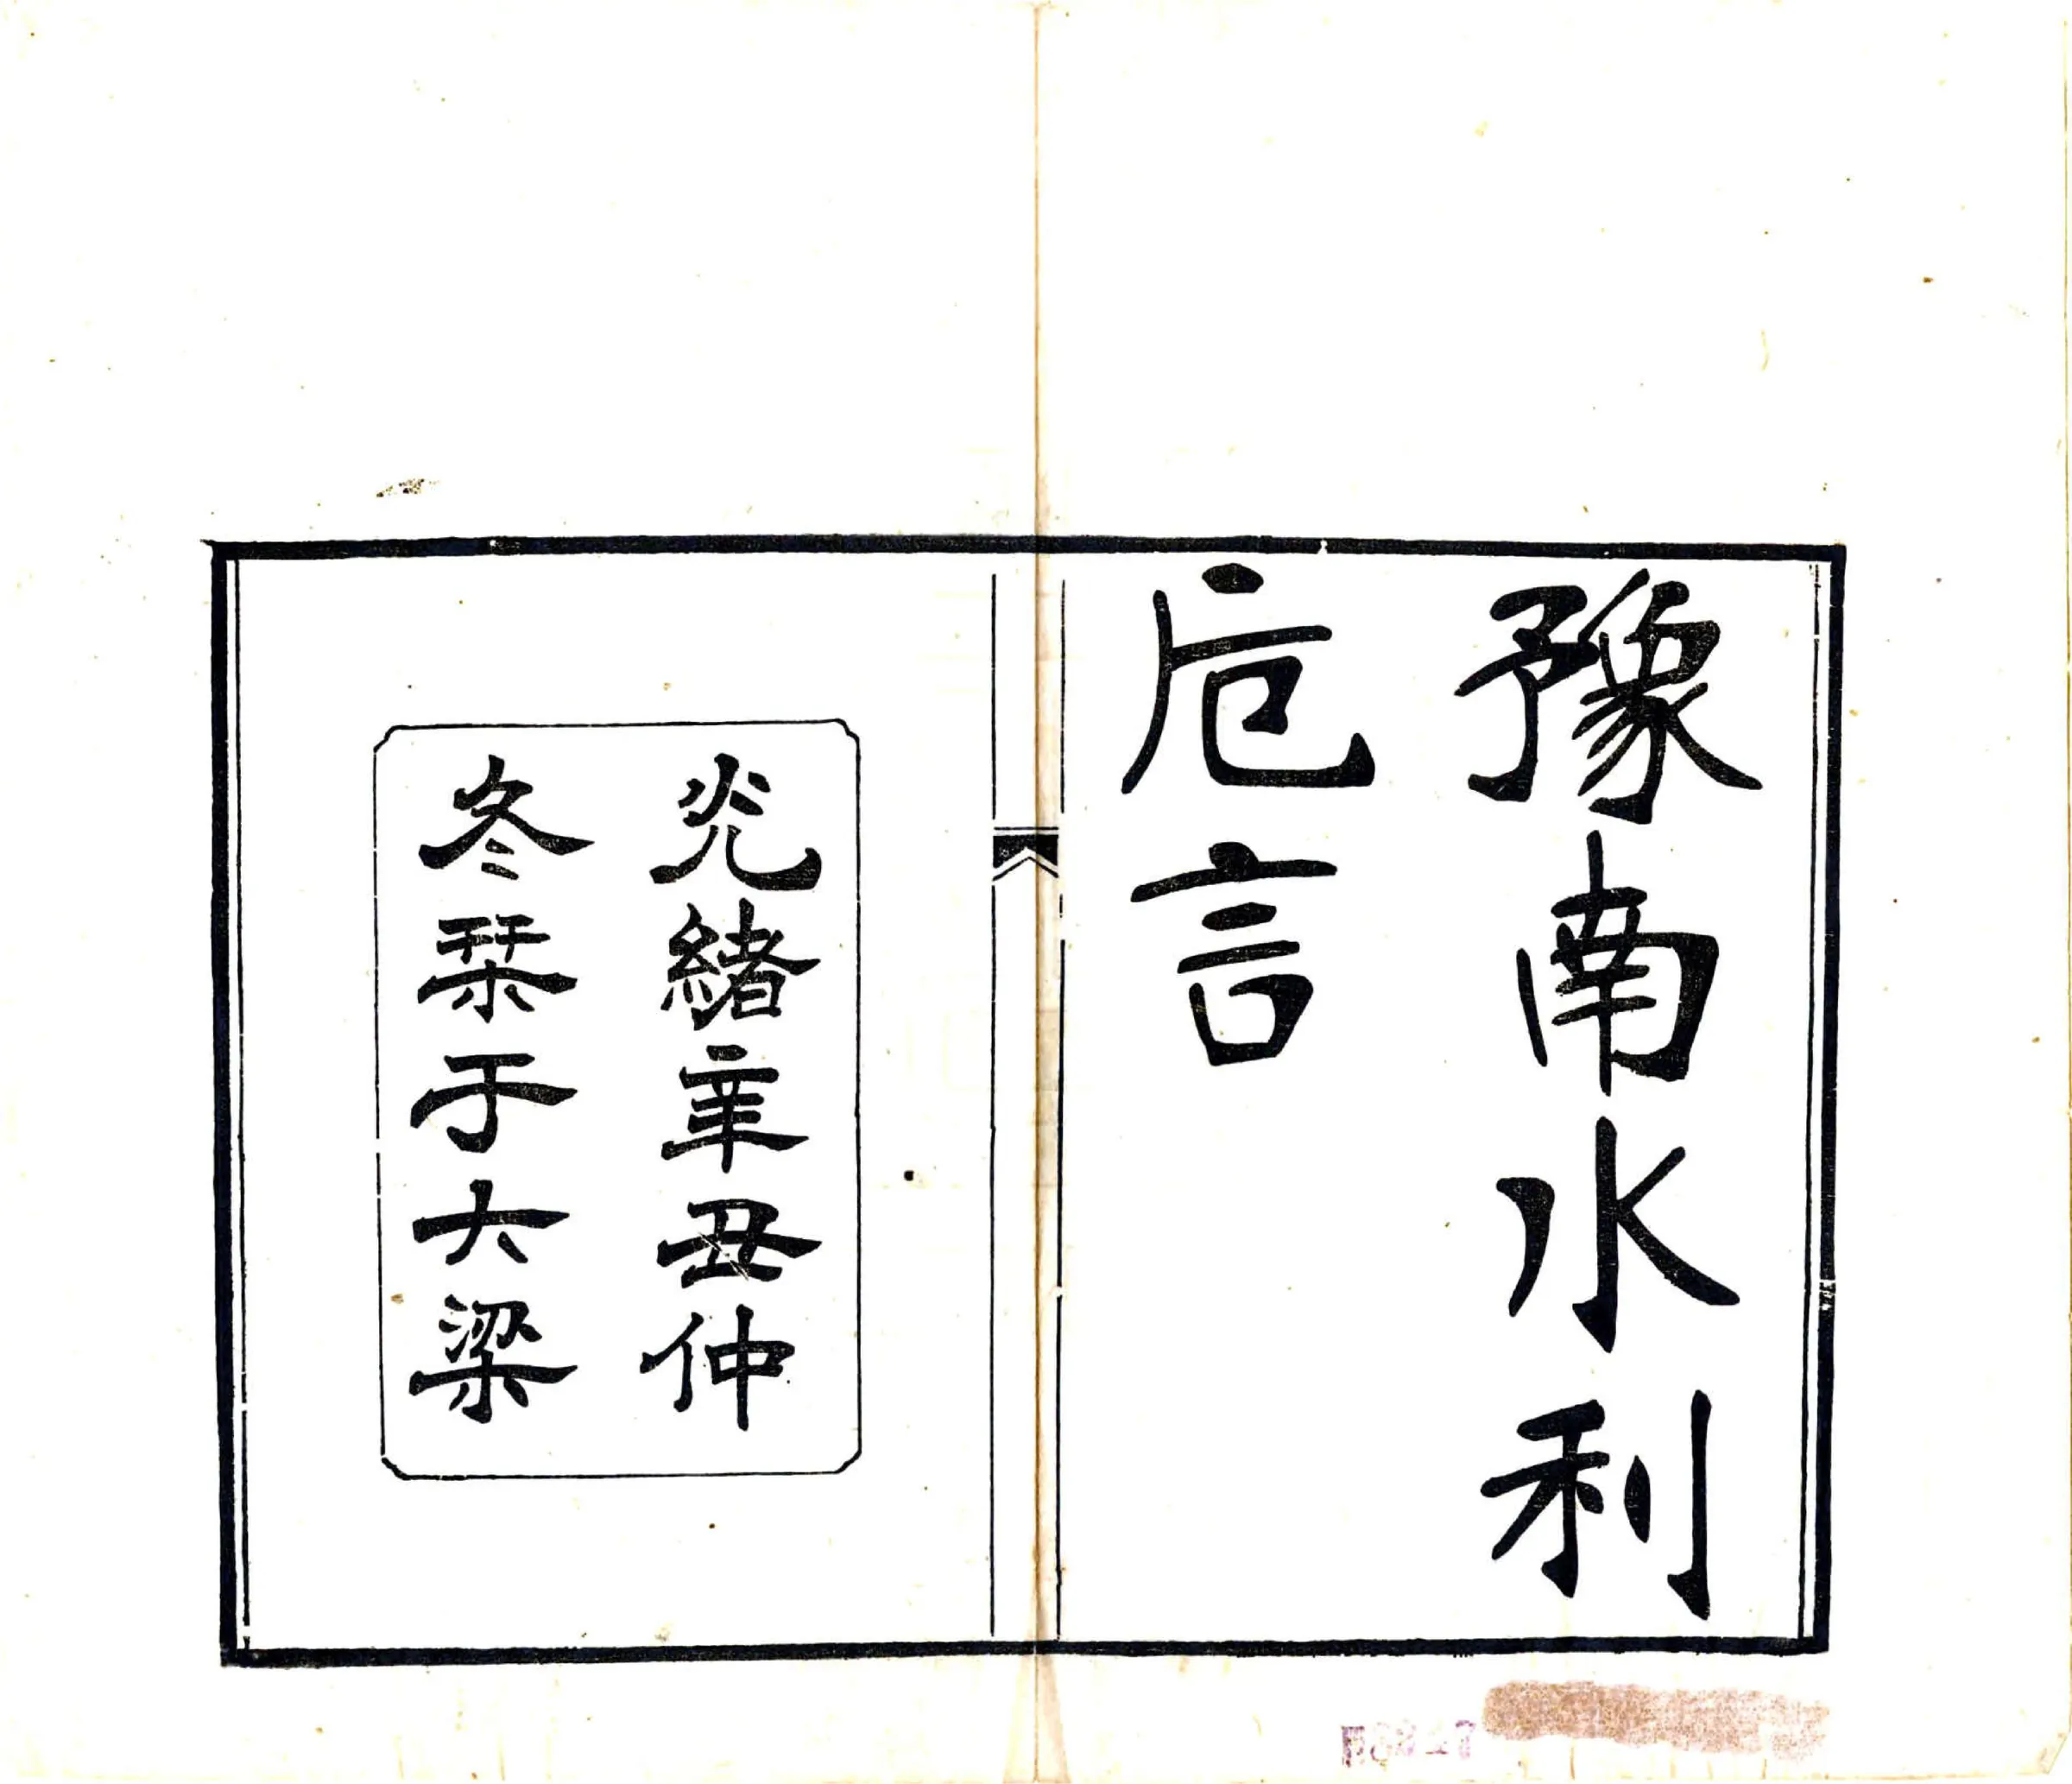 豫南水利
卮言
光緒辛丑仲
冬栞于大梁